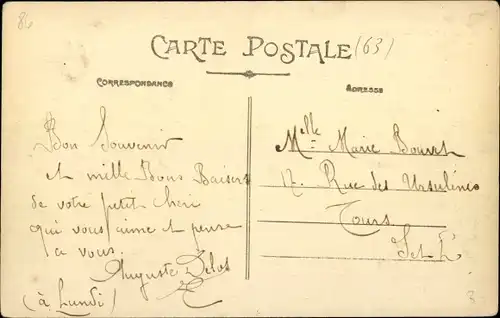 86
CARTE POSTALE (63)
CORRESPONDANCE
ADRESSE
Bon Souvenir
et mille Bons Baisers
de votre petit chéri
qui vous aime et pense
a vous.
Auguste
(à Lundi)
Melle Marie
17. Rue des Ursulines
Tours
I et L.